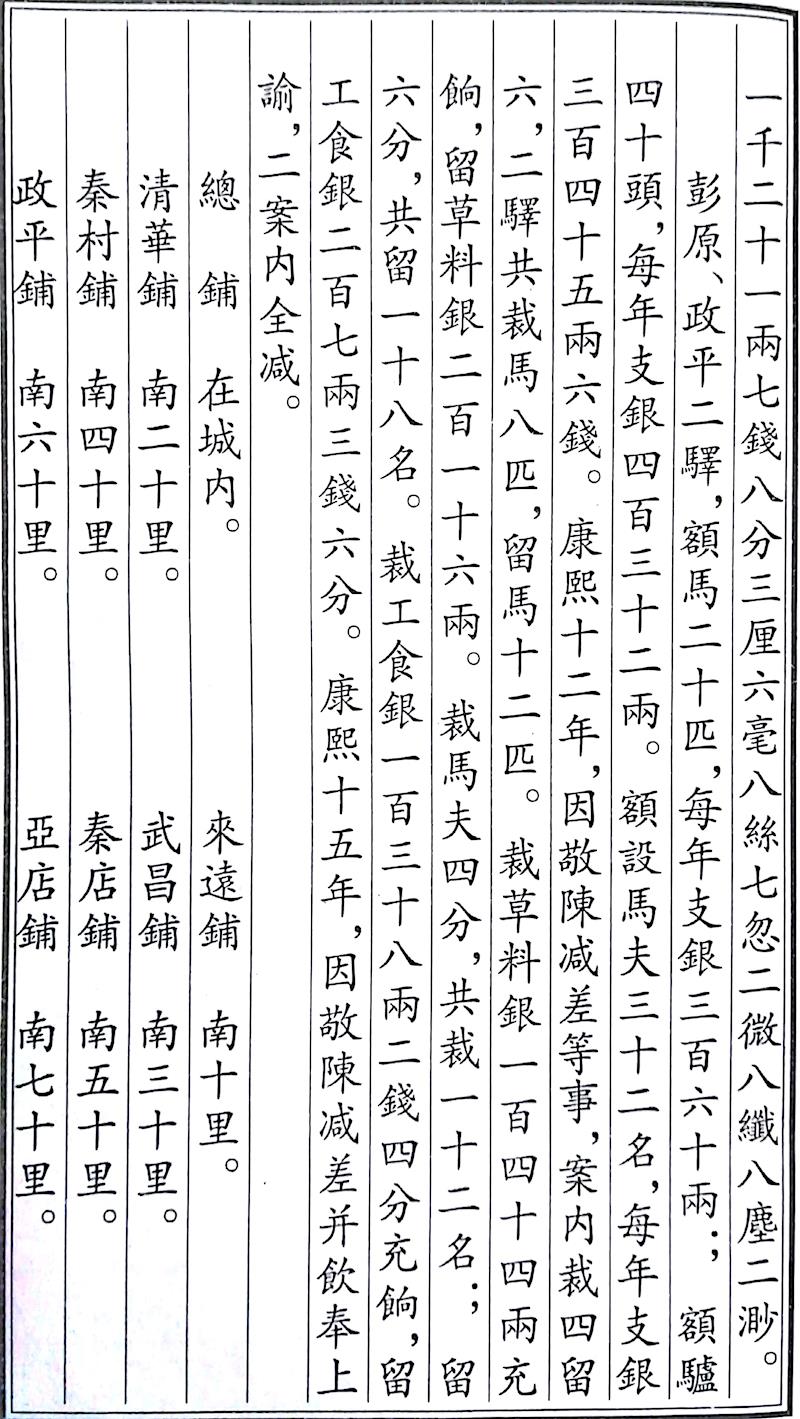 一千二十一兩七錢八分三厘六毫八絲七忽二微八纖八塵二渺。
彭原、政平二驛，額馬二十匹，每年支銀三百六十兩；額驢
四十頭，每年支銀四百三十二兩。額設馬夫三十二名，每年支銀
三百四十五兩六錢。康熙十二年，因敬陳減差等事，案内裁四留
六，二驛共裁馬八匹，留馬十二匹。裁草料銀一百四十四兩充
餉，留草料銀二百一十六兩。裁馬夫四分，共裁一十二名；留
六分，共留一十八名。裁工食銀一百三十八兩二錢四分充餉，留
工食銀二百七兩三錢六分。康熙十五年，因敬陳減差并飲奉上
諭，二案内全減。
總鋪 在城内。 來遠鋪 南十里。
清華鋪 南二十里。 武昌鋪 南三十里。
秦村鋪 南四十里。 秦店鋪 南五十里。
政平鋪 南六十里。 亞店鋪 南七十里。